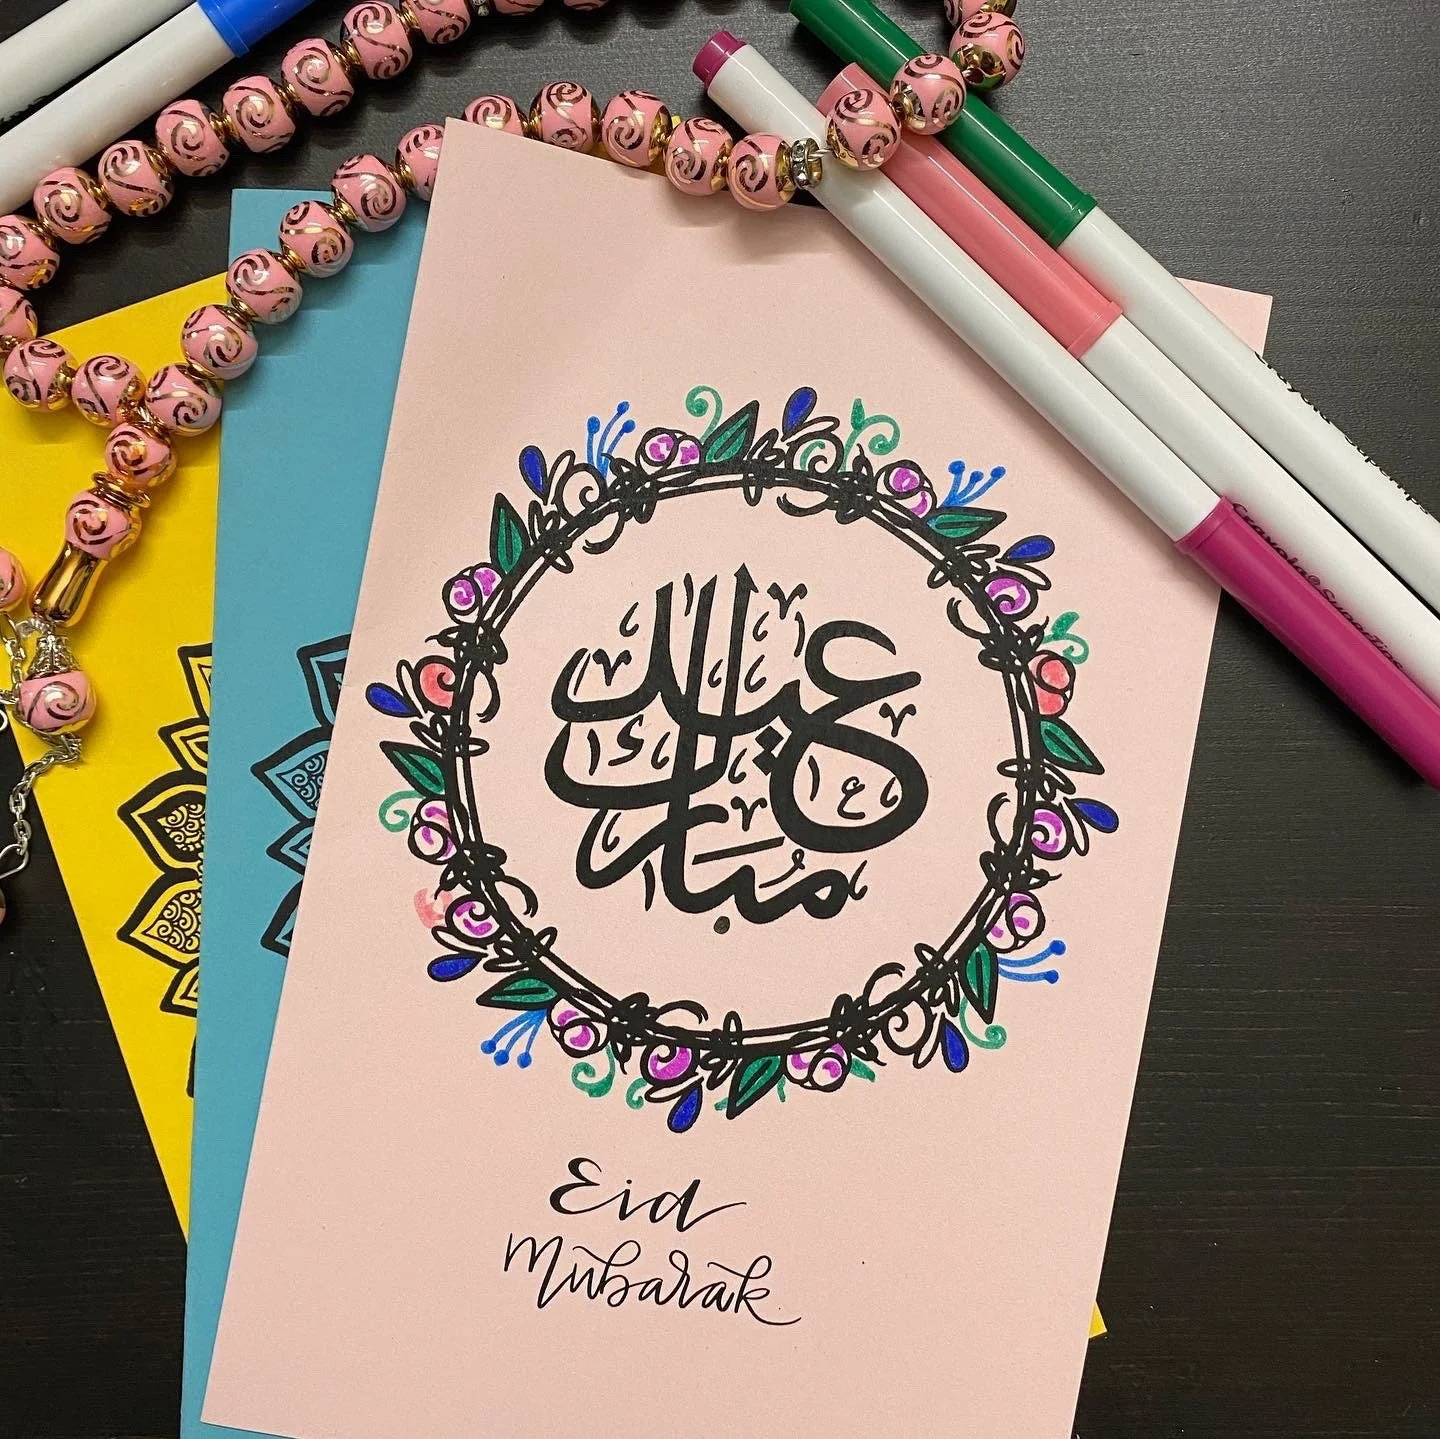 عيد
مبارك
Eid
Mubarak
Crayola® SuperTips